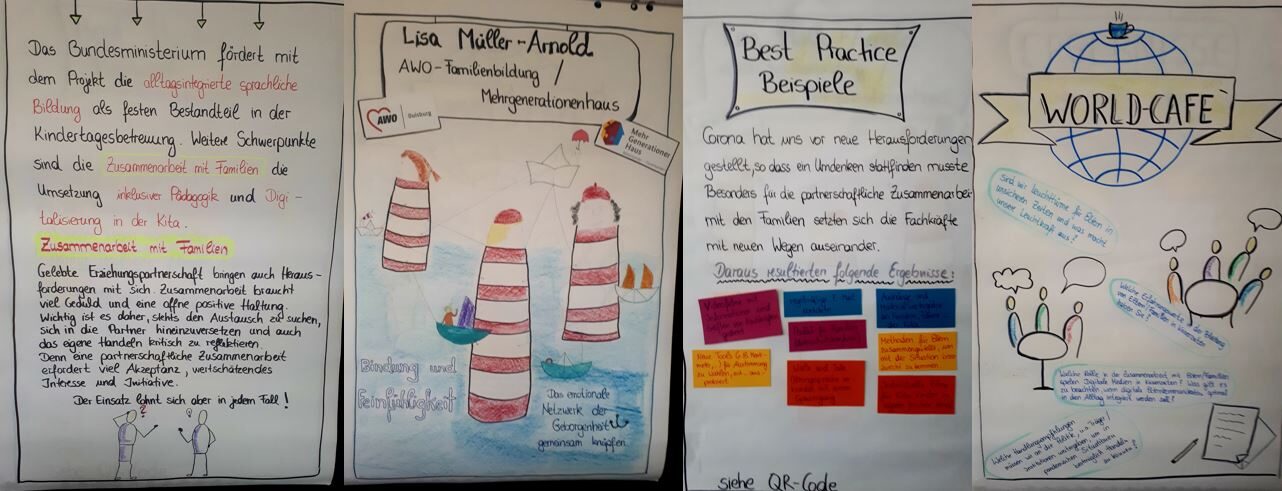 Das Bundesministerium fördert mit
dem Projekt die alltagsintegrierte sprachliche
Bildung als festen Bestandteil in der
Kindertagesbetreuung. Weitere Schwerpunkte
sind die Zusammenarbeit mit Familien die
Umsetzung inklusiver Pädagogik und Digi-
talisierung in der Kita.
Zusammenarbeit mit Familien
Gelebte Erziehungspartnerschaft bringen auch Heraus-
forderungen mit sich. Zusammenarbeit braucht
viel Geduld und eine offne positive Haltung.
Wichtig ist es daher, stehts den Austausch zu suchen,
sich in die Partner hineinzuversetzen und auch
das eigene Handeln kritisch zu reflektieren.
Denn eine partnerschaftliche Zusammenarbeit
erfordert viel Akzeptanz, wertschätzendes
Interesse und Initiative.
Der Einsatz lohnt sich aber in jedem Fall!
Lisa Müller-Arnold
AWO-Familienbildung /
Mehrgenerationenhaus
AWO Duisburg
Mehr
Generationen
Haus
Bindung und
Feinfühligkeit
Das emotionale
Netzwerk der
Geborgenheit
gemeinsam knüpfen
Best Practice
Beispiele
Corona hat uns vor neue Herausforderungen
gestellt, so dass ein Umdenken stattfinden musste
Besonders für die partnerschaftliche Zusammenarbei
mit den Familien setzten sich die Fachkräfte
mit neuen Wegen auseinander.
Daraus resultierten folgende Ergebnisse:
Informationen und
Methoden für Eltern
mit der Situation
siehe QR-Code
WORLD-CAFÉ
Sind wir Leuchttürme für Eltern in
unsicheren Zeiten und was macht
unsere Leuchtkraft aus?
Welche Erfahrungswerte in der Bindung
von Eltern/Familien in Krisenzeiten
haben Sie?
Welche Rolle in der Zusammenarbeit mit Eltern/Familien
spielen Digitale Medien in Krisenzeiten? Was gibt es
zu beachten wenn digitale Elternkommunikation optimal
in den Alltag integriert werden soll?
Welche Handlungsempfehlungen
müssen wir an die Politik, u.a. Träger/
Institutionen weitergeben, um in
pandemischen Situationen
bestmöglich Handeln
zu können?